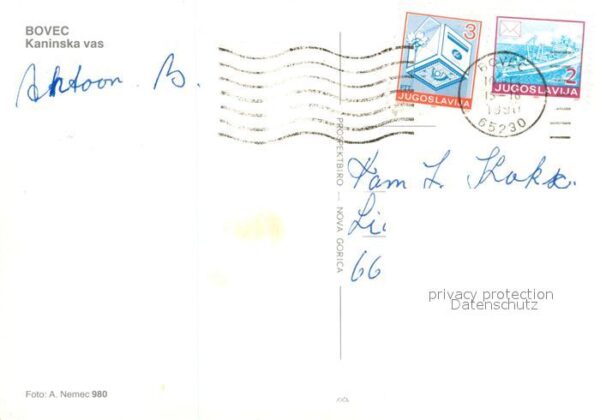 BOVEC
Kaninska vas
Antoon B.
3
PTT
JUGOSLAVIJA
2
JUGOSLAVIJA
BOVEC
1990
65230
PROSPEKTBIRO — NOVA GORICA
Fam
Li
66
privacy protection
Datenschutz
Foto: A. Nemec 980